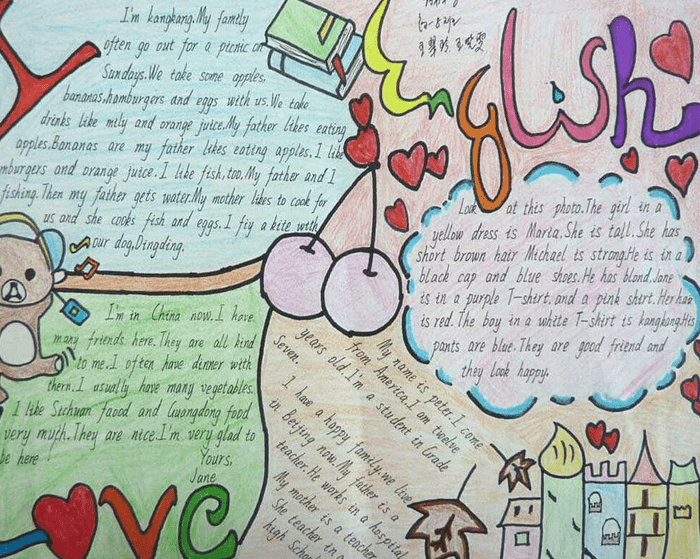 I'm kangkang.My family
often go out for a picnic on
Sundays.We take some apples,
bananas,hamburgers and eggs with us.We take
drinks like mily and orange juice.My father likes eating
apples.Bananas are my father likes eating apples.I like
mburgers and orange juice. I like fish,too.My father and I
fishing. Then my father gets water.My mother likes to cook for
us and she cooks fish and eggs. I fiy a kite with
our dog,Dingding.
English
Look at this photo.The girl in a
yellow dress is Maria.She is tall.She has
short brown hair Michael is strong.He is in a
black cap and blue shoes.He has blond.Jane
is in a purple T-shirt.and a pink shirt.Her hair
is red.The boy in a white T-shirt is kangkang.His
pants are blue.They are good friend and
they look happy.
I'm in China now.I have
many friends here.They are all kind
to me.I often have dinner with
them.I usually have many vegetables.
I like Sichuan faood and Guangdong food
very myth.They are nice.I'm very glad to
be here
Yours,
Jane
My name is peter.I come
from America.I am twelve
years old.I'm a student in Grade
Seven.
I have a happy family.we live
in Beijing now.My father is a
teacher.He works in a hospital
My mother is a teacher
She teacher in a
high School
VE